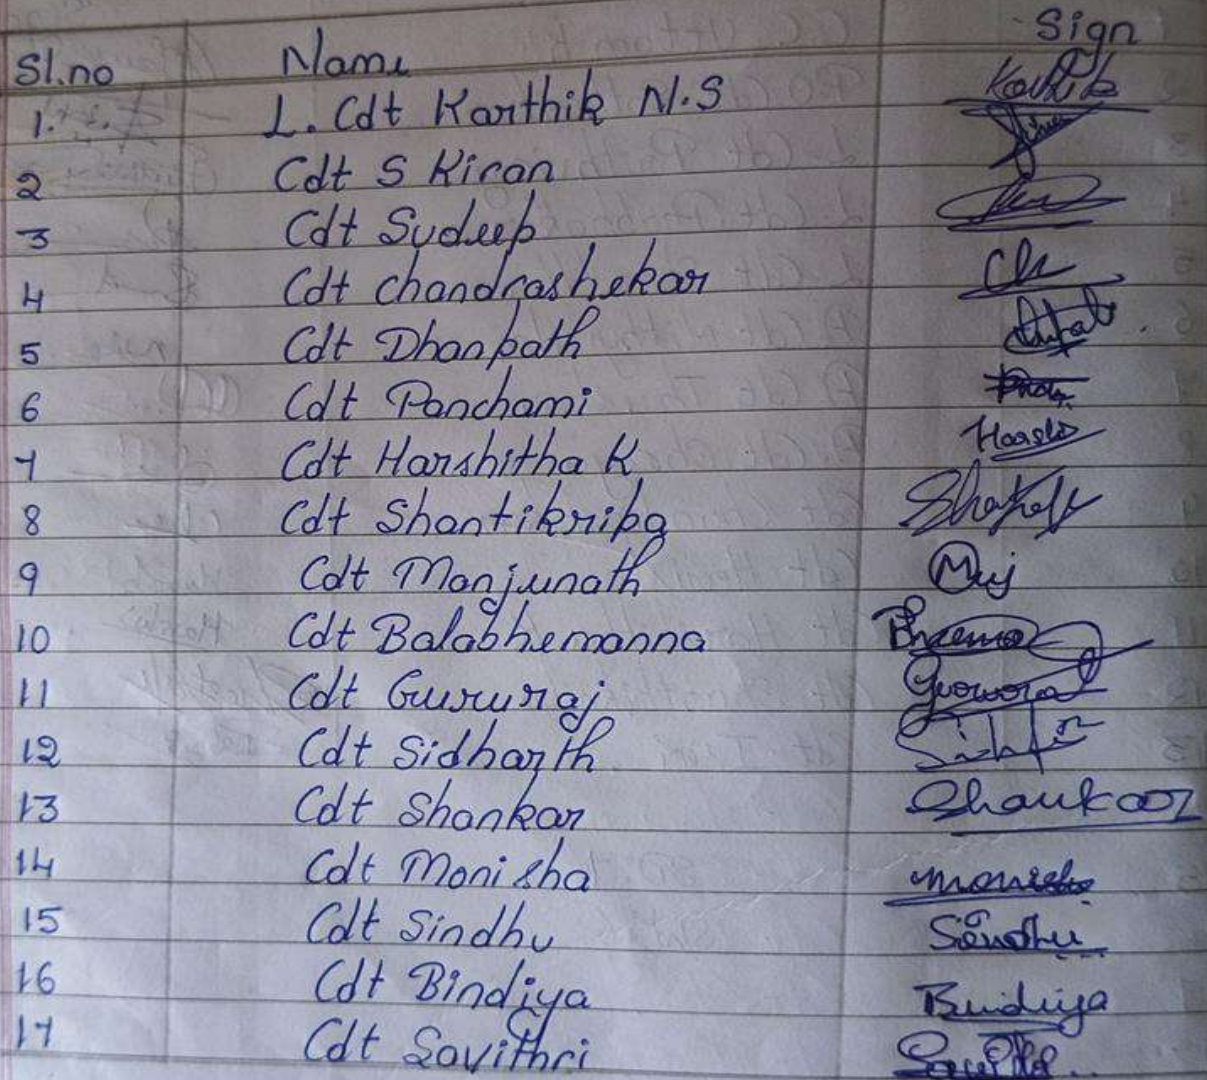 Sl.no Name Sign
1. L. Cdt Karthik N.S Karthik
2 Cdt S Kiran
3 Cdt Sudeep
4 Cdt Chandrashekar
5 Cdt Dhanpath
6 Cdt Panchami
7 Cdt Harshitha K
8 Cdt Shantikripa
9 Cdt Manjunath
10 Cdt Balabhemanna
11 Cdt Gururaj
12 Cdt Sidharth
13 Cdt Shankar
14 Cdt Monisha
15 Cdt Sindhu Sindhu
16 Cdt Bindiya Bindiya
17 Cdt Savithri